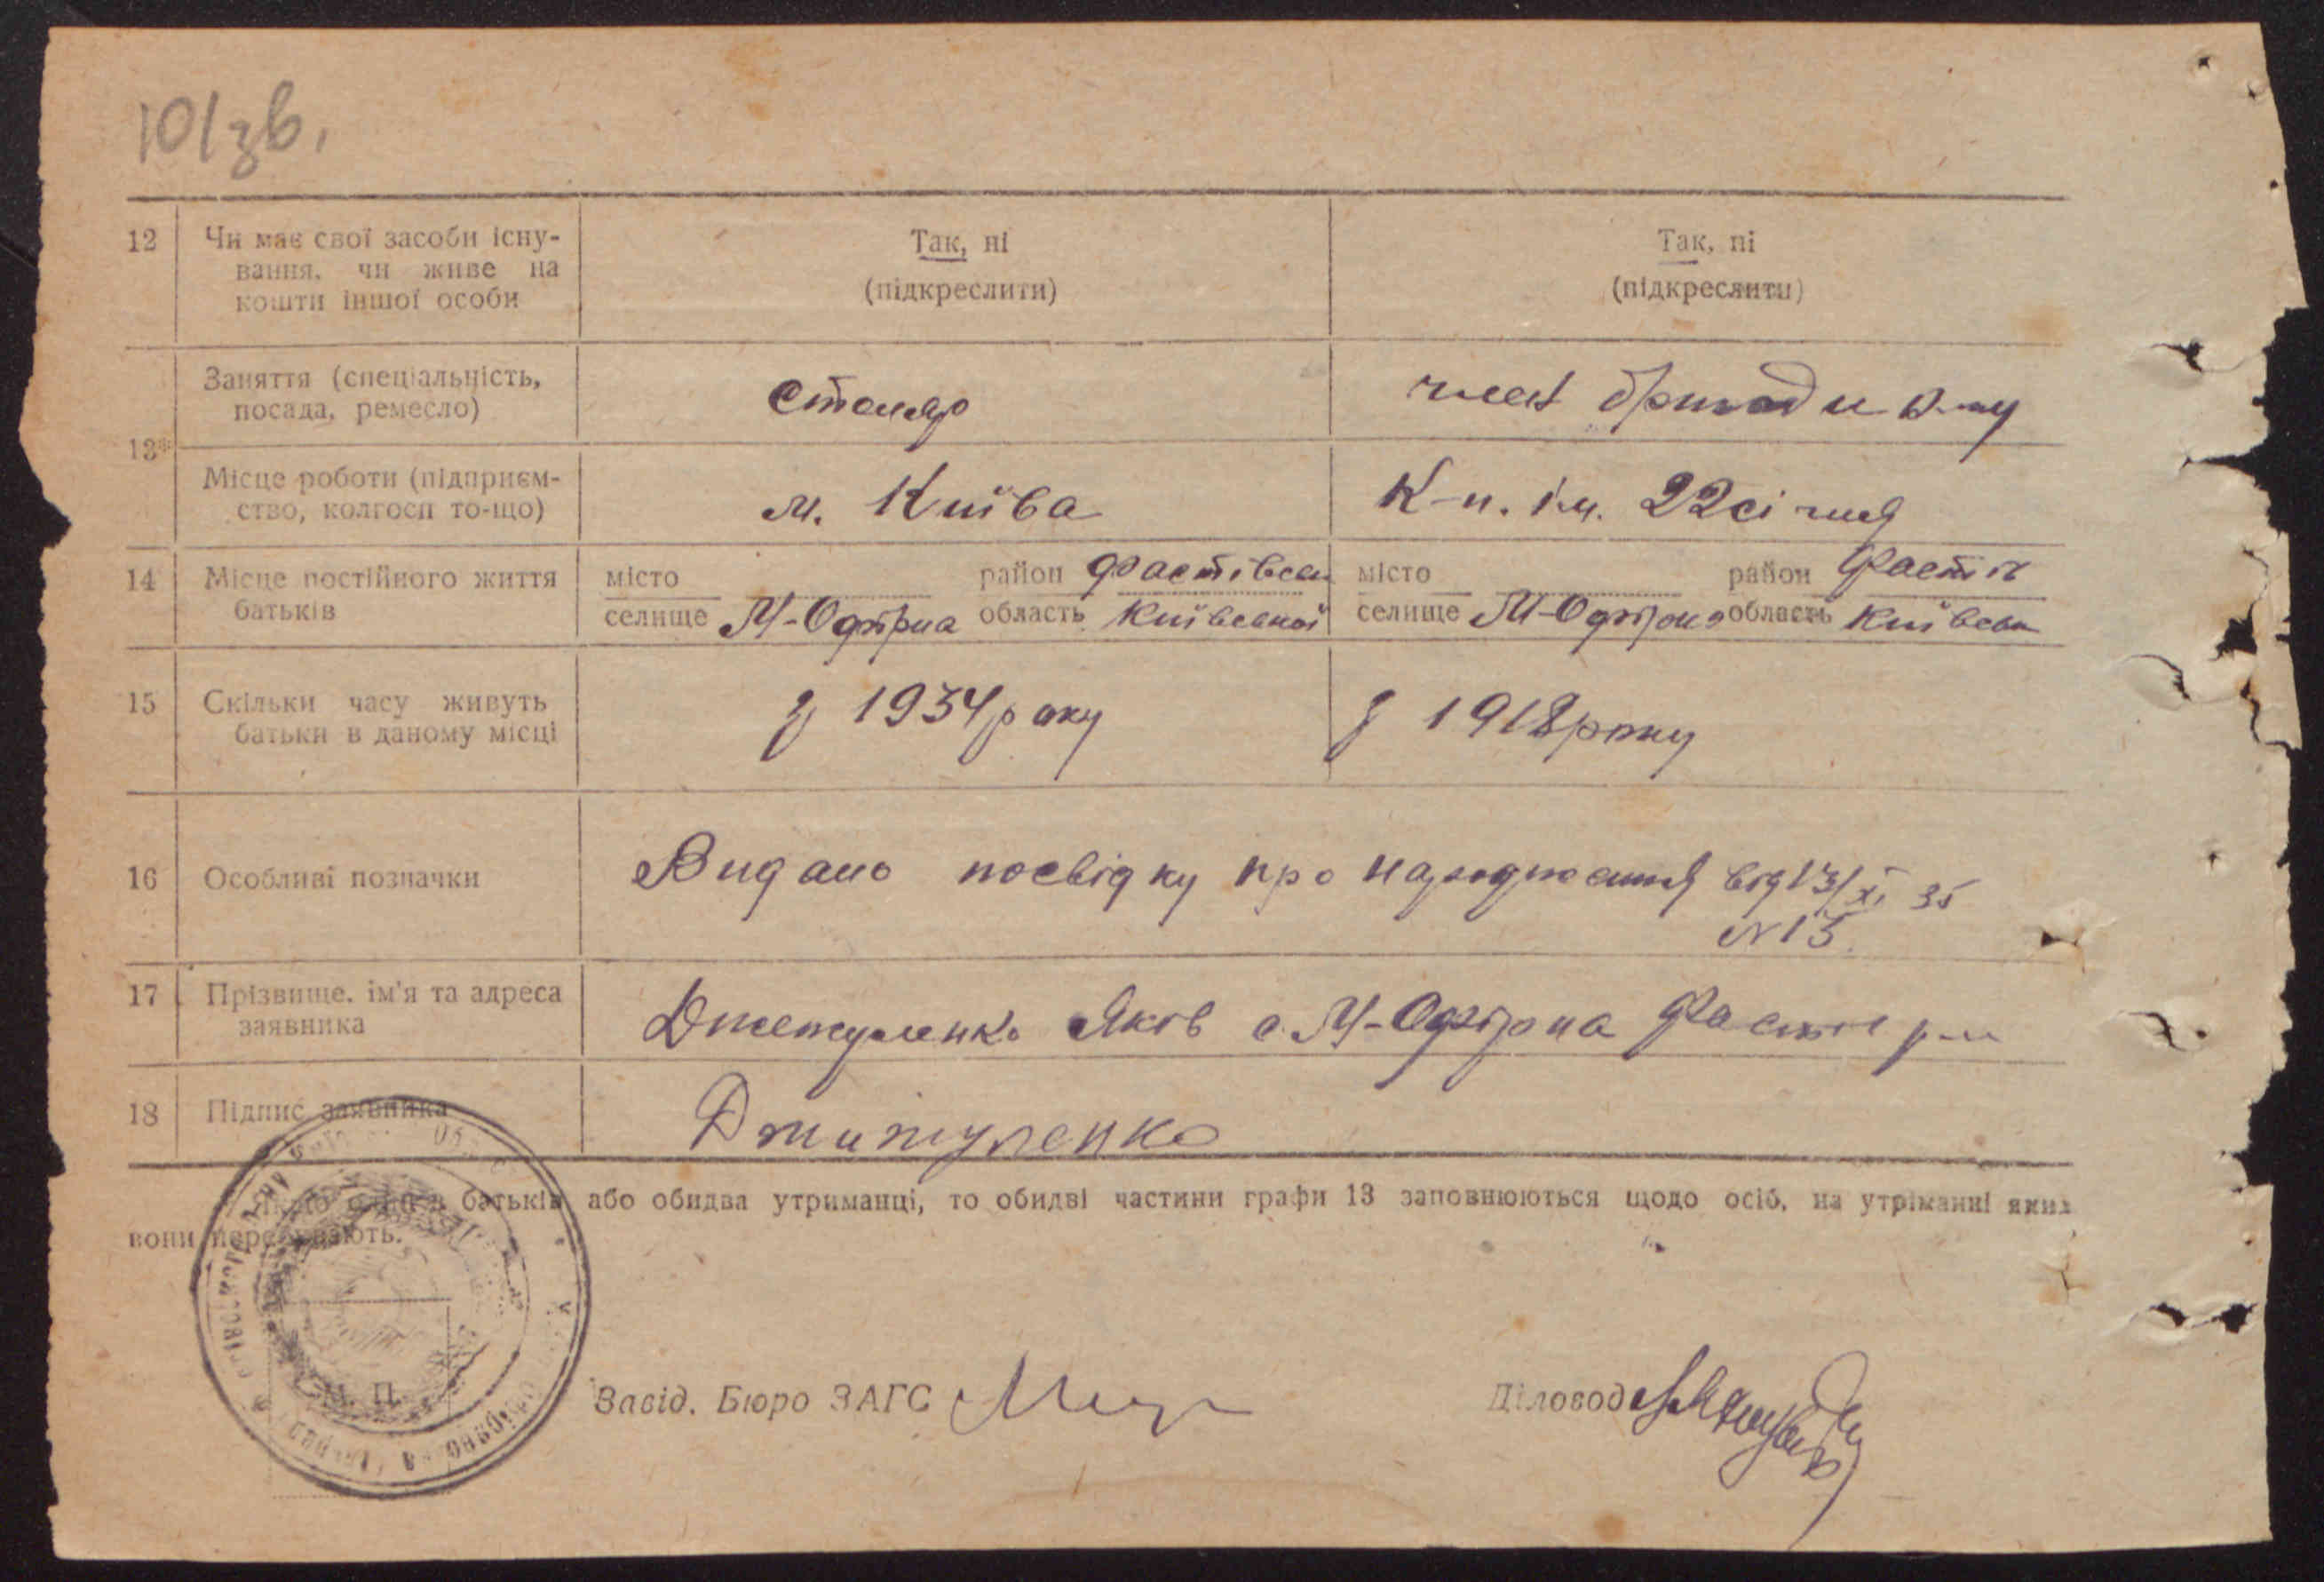 101зв.
12 Чи має свої засоби існу- Так, ні Так, ні
вання, чи живе на (підкреслити) (підкреслити)
кошти іншої особи
13* Заняття (спеціальність, столяр член бригади
посада, ремесло)
Місце роботи (підприєм- м. Київа К-п. ім. 22 січня
ство, колгосп то-що)
14 Місце постійного життя місто район Фастівськ місто район Фастів
батьків селище М-Офірна область Київської селище М-Офірна область Київськ
15 Скільки часу живуть з 1934 року з 1918 року
батьки в даному місці
16 Особливі позначки Видано посвідку про народження від 13/XI 35
№ 15.
17 Прізвище, ім'я та адреса Джежуленко Яків с. М-Офірна Фастів р-н
заявника
18 Підпис заявника Джижуленко
батьків або обидва утриманці, то обидві частини графи 13 заповнюються щодо осіб, на утріманні яких
вони перебувають.
М. П.
Завід. Бюро ЗАГС Діловод